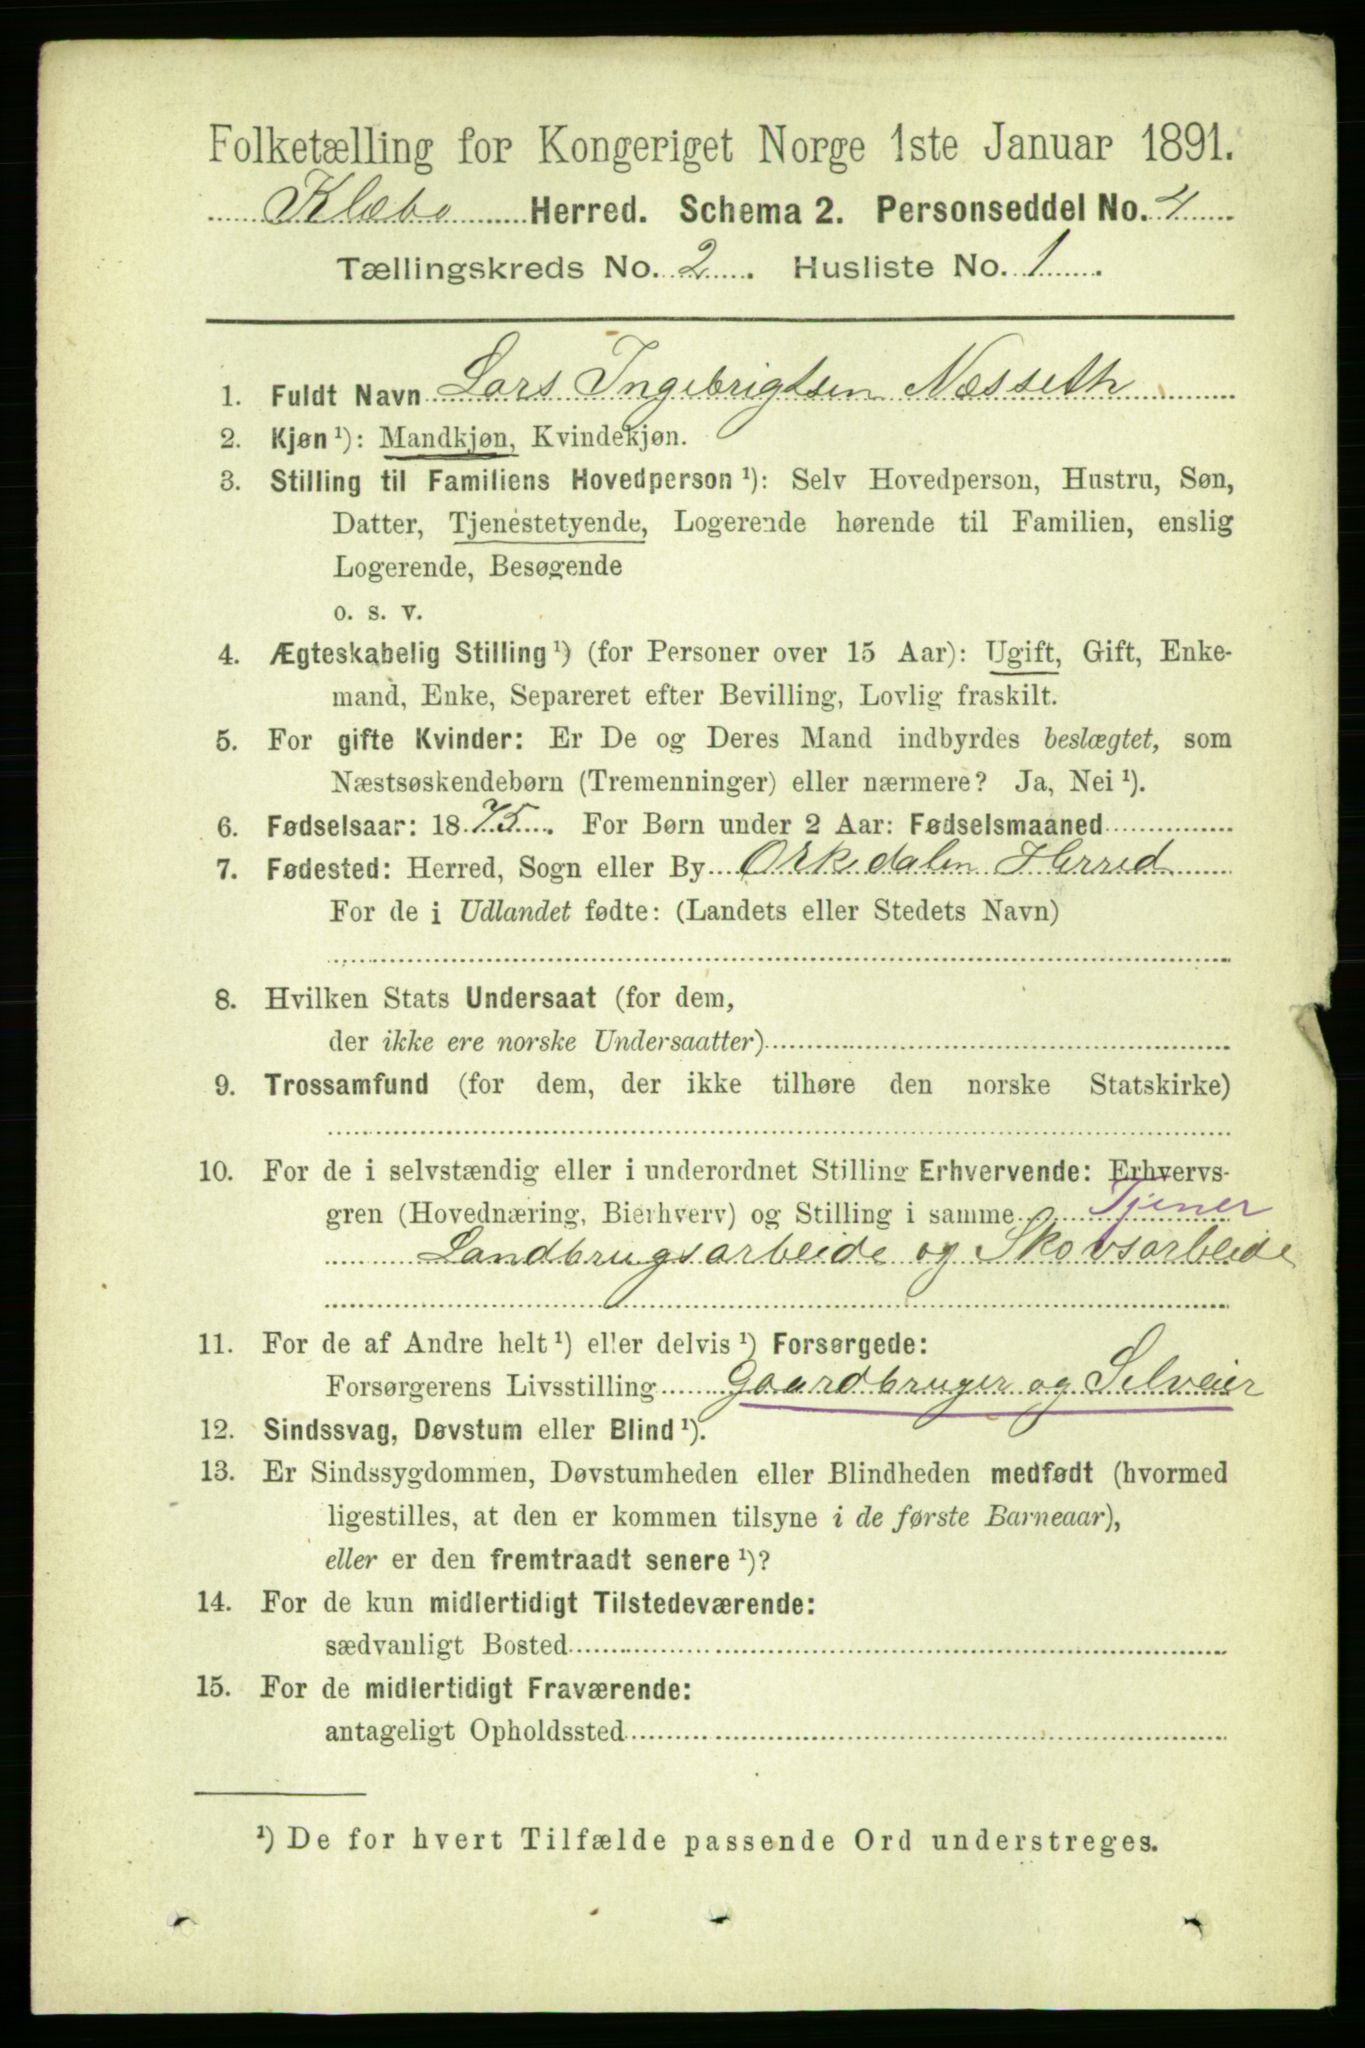 Folketælling for Kongeriget Norge 1ste Januar 1891.
Klæbo Herred. Schema 2. Personseddel No. 4
Tællingskreds No. 2. Husliste No. 1.
1. Fuldt Navn Lars Ingebrigtsen Næsseth
2. Kjøn ¹): Mandkjøn, Kvindekjøn.
3. Stilling til Familiens Hovedperson ¹): Selv Hovedperson, Hustru, Søn,
Datter, Tjenestetyende, Logerende hørende til Familien, enslig
Logerende, Besøgende
o. s. v.
4. Ægteskabelig Stilling ¹) (for Personer over 15 Aar): Ugift, Gift, Enke-
mand, Enke, Separeret efter Bevilling, Lovlig fraskilt.
5. For gifte Kvinder: Er De og Deres Mand indbyrdes beslægtet, som
Næstsøskendebørn (Tremenninger) eller nærmere? Ja, Nei ¹).
6. Fødselsaar: 1875. For Børn under 2 Aar: Fødselsmaaned
7. Fødested: Herred, Sogn eller By Orkedalen Herred
For de i Udlandet fødte: (Landets eller Stedets Navn)
8. Hvilken Stats Undersaat (for dem,
der ikke ere norske Undersaatter)
9. Trossamfund (for dem, der ikke tilhøre den norske Statskirke)
10. For de i selvstændig eller i underordnet Stilling Erhvervende: Erhvervs-
gren (Hovednæring, Bierhverv) og Stilling i samme Tjener
Landbrugsarbeide og Skovsarbeide
11. For de af Andre helt ¹) eller delvis ¹) Forsørgede:
Forsørgerens Livsstilling Gaardbruger og Selveier
12. Sindssvag, Døvstum eller Blind ¹).
13. Er Sindssygdommen, Døvstumheden eller Blindheden medfødt (hvormed
ligestilles, at den er kommen tilsyne i de første Barneaar),
eller er den fremtraadt senere ¹)?
14. For de kun midlertidigt Tilstedeværende:
sædvanligt Bosted
15. For de midlertidigt Fraværende:
antageligt Opholdssted
¹) De for hvert Tilfælde passende Ord understreges.